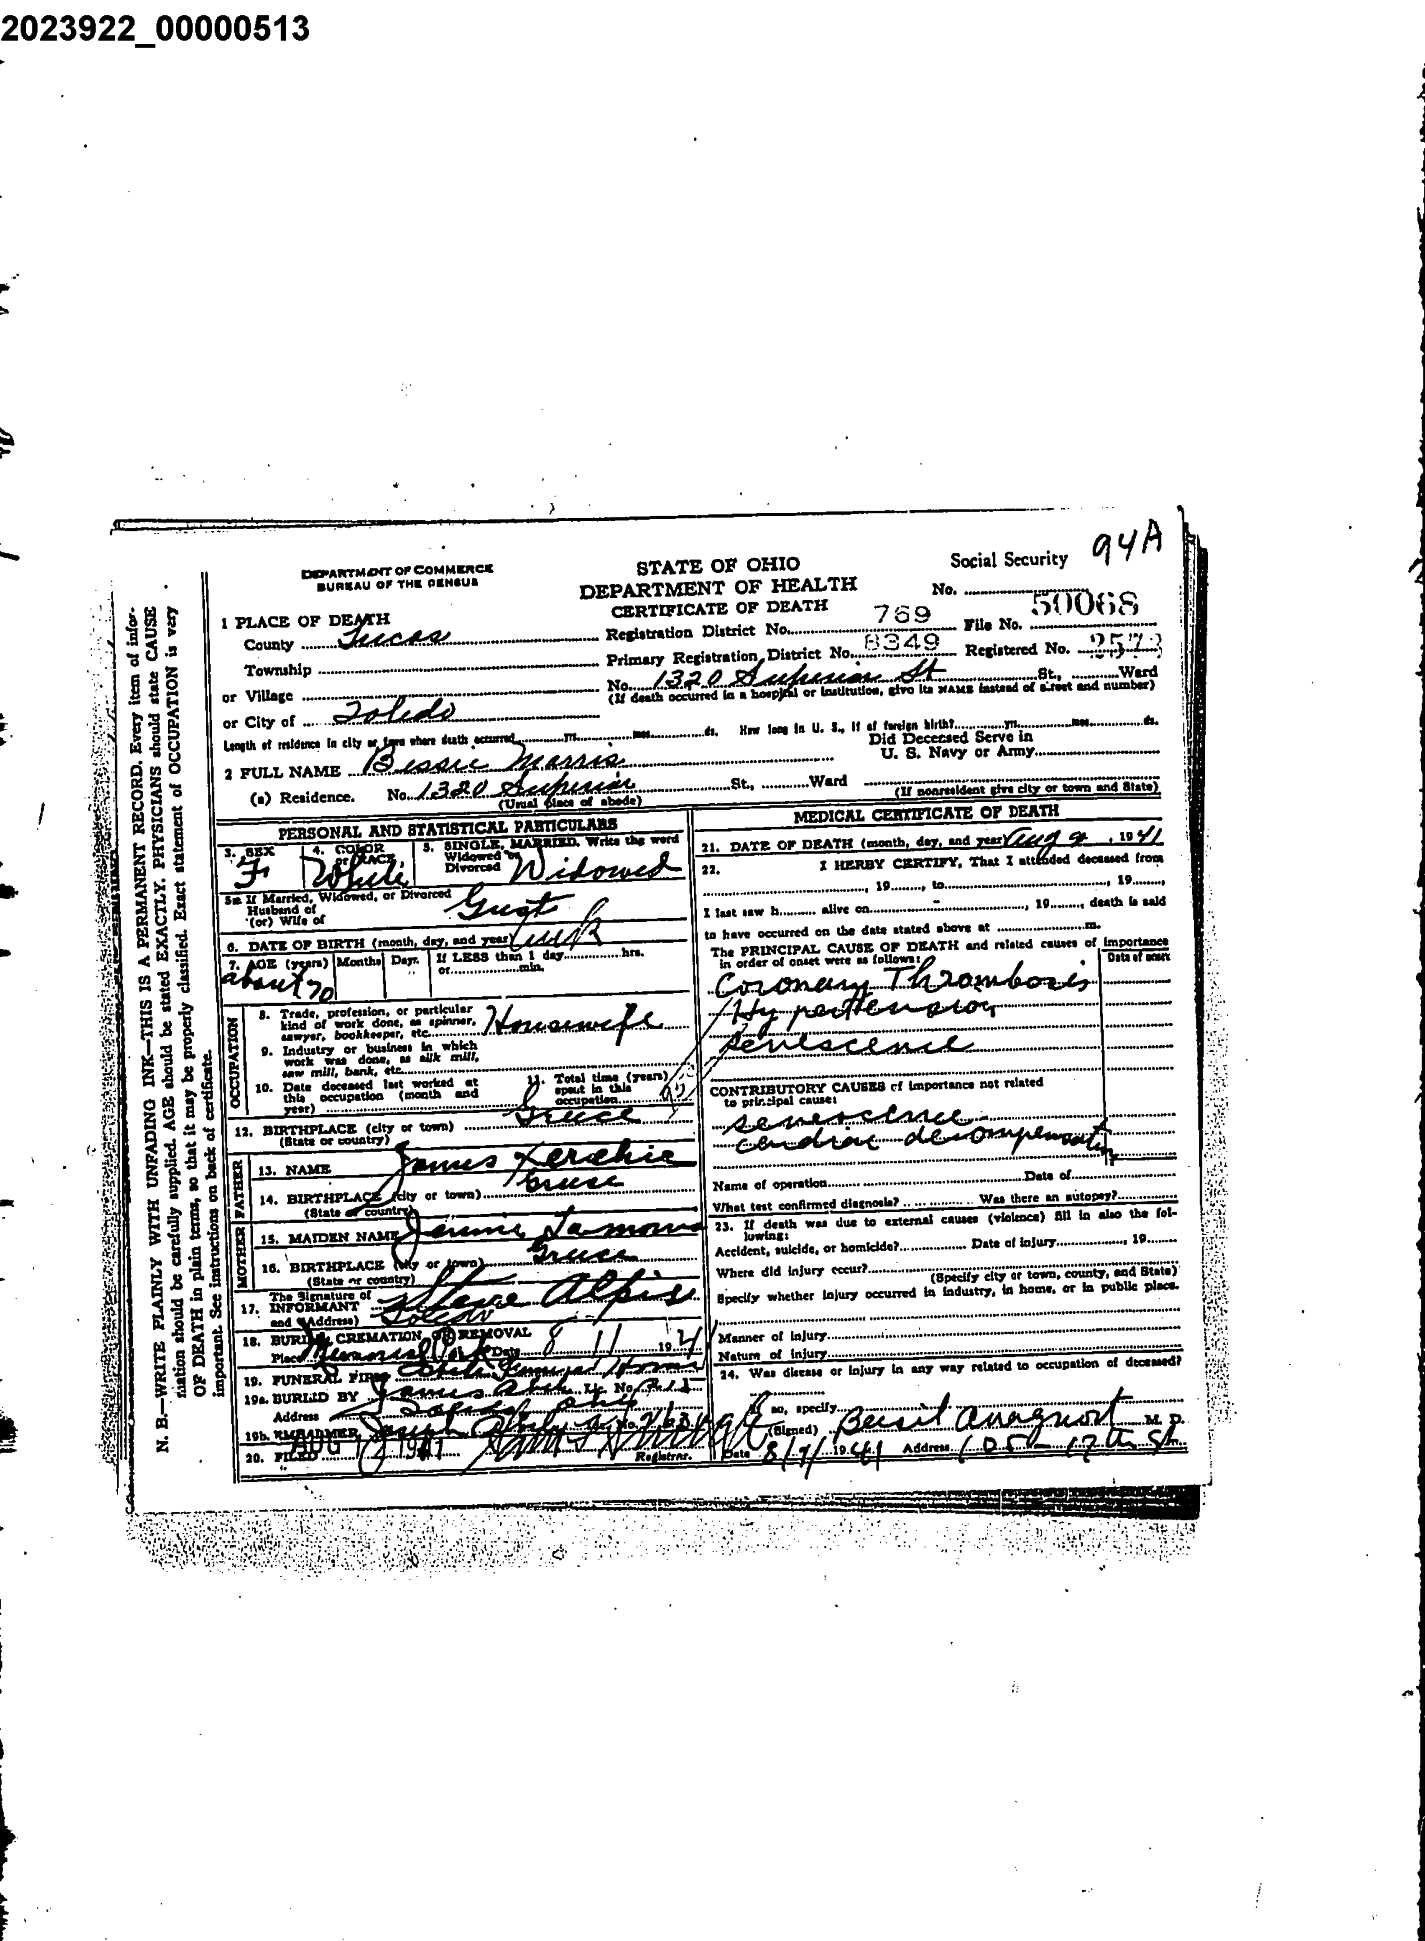 2023922_00000513
94A
DEPARTMENT OF COMMERCE
BUREAU OF THE CENSUS
STATE OF OHIO
DEPARTMENT OF HEALTH
CERTIFICATE OF DEATH
Social Security
No. ....................
1 PLACE OF DEATH
County Lucas
Registration District No. 769 File No. 50068
Township
Primary Registration District No. 8349 Registered No. 2573
or Village
No. 1320 Superior St St., Ward
(If death occurred in a hospital or institution, give its NAME instead of street and number)
or City of Toledo
Length of residence in city or town where death occurred yrs. mos. ds. How long in U. S., if of foreign birth? yrs. mos. ds.
Did Deceased Serve in
U. S. Navy or Army
2 FULL NAME Bessie Morris
(a) Residence. No. 1320 Superior St., Ward
(Usual place of abode) (If nonresident give city or town and State)
PERSONAL AND STATISTICAL PARTICULARS
3. SEX F
4. COLOR or RACE, White
5. SINGLE, MARRIED. Write the word
Widowed or
Divorced Widowed
5a If Married, Widowed, or Divorced
Husband of
(or) Wife of Gust
6. DATE OF BIRTH (month, day, and year) unk
7. AGE (years) Months Days If LESS than 1 day hrs.
or min.
about 70
OCCUPATION
8. Trade, profession, or particular
kind of work done, as spinner,
sawyer, bookkeeper, etc. Housewife
9. Industry or business in which
work was done, as silk mill,
saw mill, bank, etc.
10. Date deceased last worked at
this occupation (month and
year)
11. Total time (years)
spent in this
occupation
12. BIRTHPLACE (city or town) Greece
(State or country)
FATHER
13. NAME James
14. BIRTHPLACE (city or town) Greece
(State or country)
MOTHER
15. MAIDEN NAME Jennie
16. BIRTHPLACE (city or town) Greece
(State or country)
17. The Signature of
INFORMANT Steve Alpis
and (Address) Toledo
18. BURIAL, CREMATION OR REMOVAL
Place Memorial Park Date 8 11 1941
19. FUNERAL FIRM Funeral Home
19a. BURIED BY James Lic. No. 
Address Toledo Ohio
19b. EMBALMER Joseph
20. FILED AUG 1941
Registrar.
MEDICAL CERTIFICATE OF DEATH
21. DATE OF DEATH (month, day, and year) Aug 9, 1941
22. I HERBY CERTIFY, That I attended deceased from
, 19 , to , 19 ,
I last saw h alive on , 19 , death is said
to have occurred on the date stated above at m.
The PRINCIPAL CAUSE OF DEATH and related causes of importance
in order of onset were as follows: Date of onset
Coronary Thrombosis
Hypertension
Senescence
CONTRIBUTORY CAUSES of importance not related
to principal cause:
senescence
cardiac decompensation
Name of operation Date of
What test confirmed diagnosis? Was there an autopsy?
23. If death was due to external causes (violence) fill in also the fol-
lowing:
Accident, suicide, or homicide? Date of injury , 19
Where did injury occur?
(Specify city or town, county, and State)
Specify whether injury occurred in industry, in home, or in public place.
Manner of injury
Nature of injury
24. Was disease or injury in any way related to occupation of deceased?
If so, specify
(Signed) M. D.
Date 1941 Address 17th St.
N. B.—WRITE PLAINLY WITH UNFADING INK—THIS IS A PERMANENT RECORD. Every item of infor-
mation should be carefully supplied. AGE should be stated EXACTLY. PHYSICIANS should state CAUSE
OF DEATH in plain terms, so that it may be properly classified. Exact statement of OCCUPATION is very
important. See instructions on back of certificate.